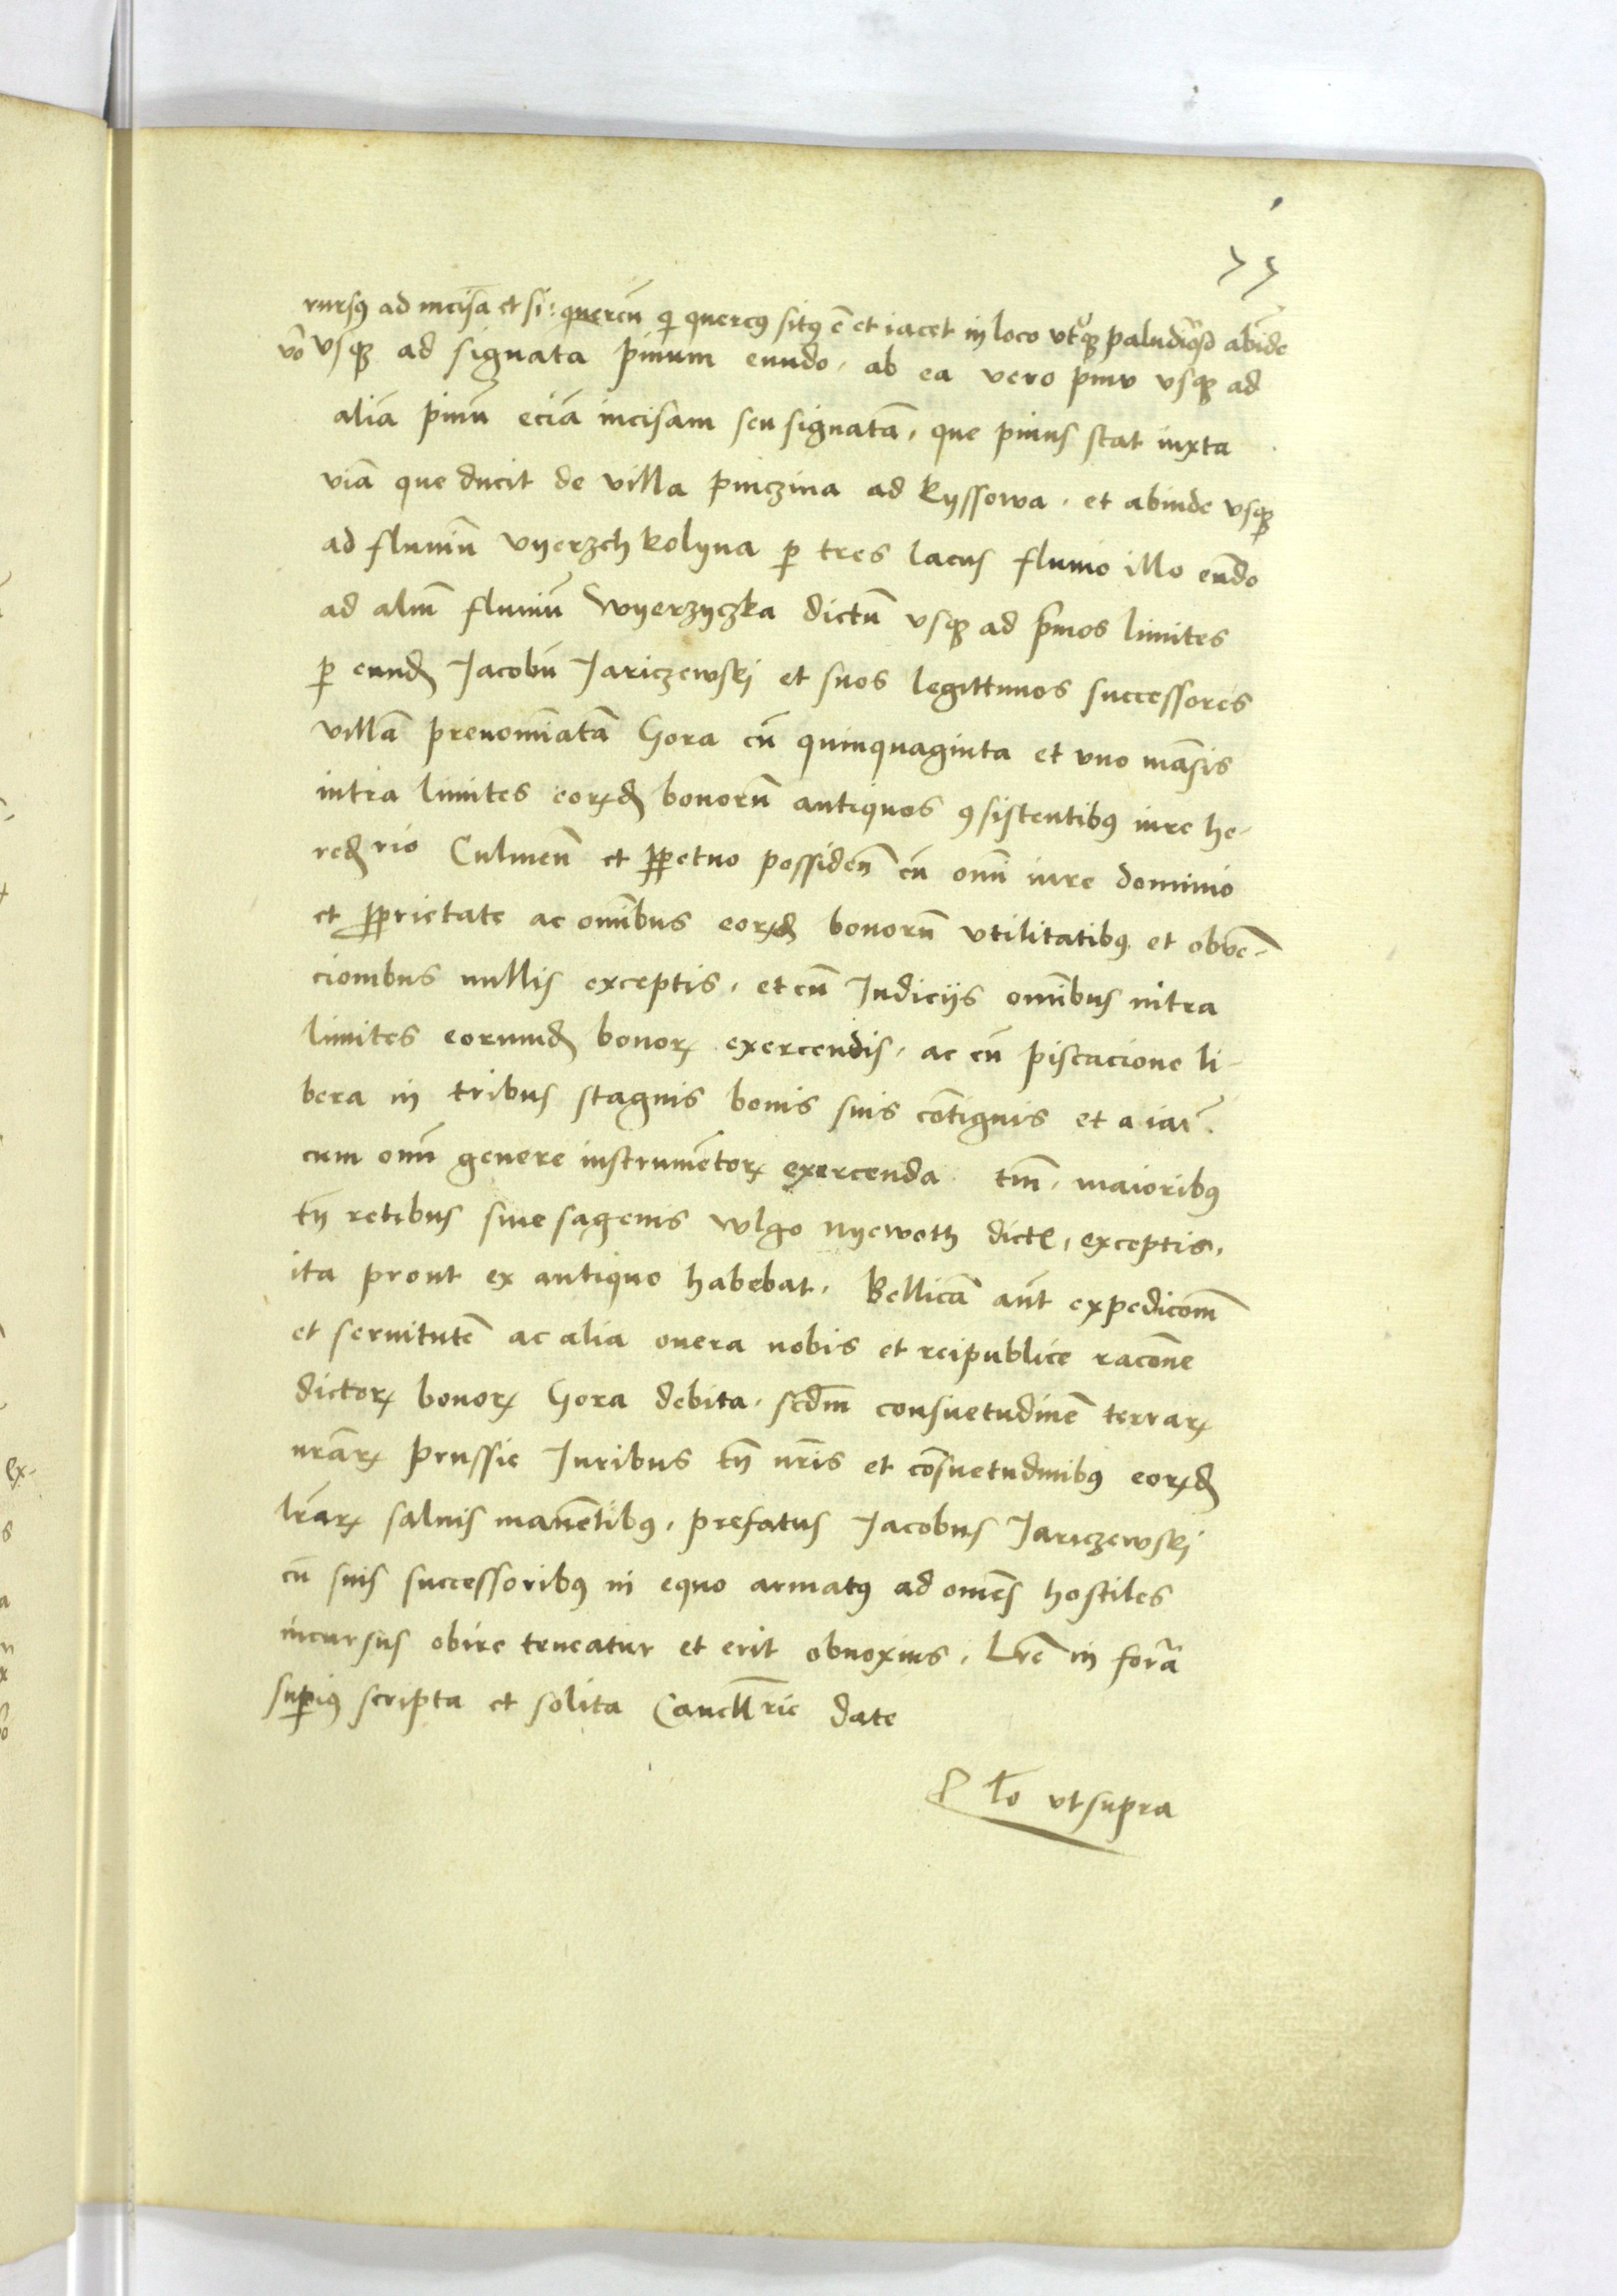 77
rursꝯ ad incisā et si: quercū qͥ quercꝯ sitꝯ ē et iacet in loco vtrqꝫ paludioso abinde
vo vsqꝫ ad signata pinum eundo, ab ea vero pinu vsqꝫ ad
aliā pinū eciā incisam seu signatā, que pinus stat iuxta
viā que ducit de villa pinczina ad Ryssowa, et abinde vsqꝫ
ad fluuiū vyerzch kolyna ꝑ tres lacus fluuio illo eūdo
ad aliū fluuiū Wyerzyczka dictū vsqꝫ ad pͥmos limites
ꝑ eundē Jacobū Jariczewskj et suos legittimos successores
villā prenomīatā Gora cū quinquaginta et vno māsis
intra limites eorꝝdē bonorū antiquos ꝯsistentibꝯ iure he-
redrio Culmeñ et ꝑpetuo possideñ cū om̄i iure dominio
et ꝓprietate ac om̄ibus eorꝝdē bonorū vtilitatibꝯ et obvē-
cionibus nullis exceptis, et cū Judicijs om̄ibus intra
limites eorundē bonorꝝ exercendis, ac cū piscacione li-
bera in tribus stagnis bonis suis cōtiguis et aiaī
cum om̄i genere instrumētorꝝ exercenda tm̄, maioribꝯ
tn̄ retibus siue sagenis wlgo nyewoth dict, exceptis,
ita prout ex antiquo habebat, Bellicā aūt expedicōm
et seruitutē ac alia onera nobis et reipublice racōne
dictorꝝ bonorꝝ Gora debita, scdm̄ consuetudinē terrarꝝ
nr̄arꝝ prussie Juribus tn̄ nr̄is et cōsuetudinibꝯ eorꝝdē
tr̄arꝝ saluis manētibꝯ, prefatus Jacobus Jariczewskj
cū suis successoribꝯ in equo armatꝯ ad om̄es hostiles
incursus obire teneatur et erit obnoxius, Lr̄e in forā
suꝑiꝯ scripta et solita Cancllrie date
Rlo vt supra